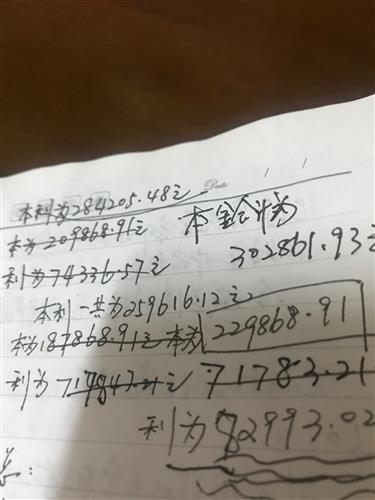 本利为284205.48元
Date / /
本为209868.91元 本金合计为
302861.93元
利为74336.57元
本利一共为259616.12元
本为187868.91元 本为 229868.91
利为717843.21元 71783.21
利为82993.02
总: